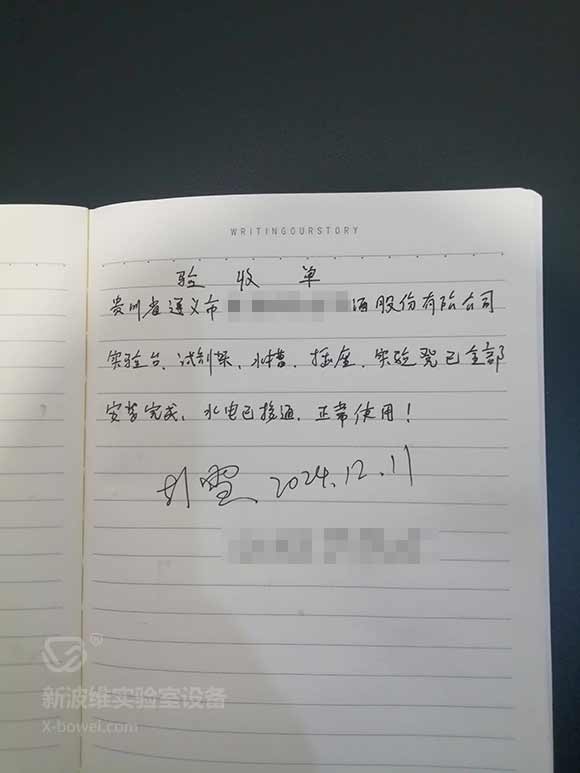 WRITINGOURSTORY
验收单
贵州省遵义市 酒股份有限公司
实验台、试剂架、水槽、插座、实验凳已全部
安装完成，水电已接通，正常使用！
2024.12.11
新波维实验室设备
X-bowei.com